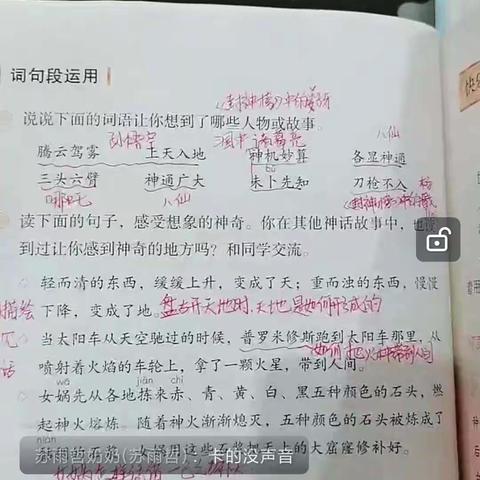 词句段运用
《封神榜》中的姜子牙
说说下面的词语让你想到了哪些人物或故事。
孙悟空 诸葛亮 八仙
腾云驾雾 上天入地 神机妙算 各显神通
bǔ
三头六臂 神通广大 未卜先知 刀枪不入
哪吒 八仙 《封神榜》中的
读下面的句子,感受想象的神奇。你在其他神话故事中,也
到过让你感到神奇的地方吗?和同学交流。
轻而清的东西,缓缓上升,变成了天;重而浊的东西,慢慢
描绘 下降,变成了地。盘古开天地时,天地是如何形成的
当太阳车从天空驰过的时候,普罗米修斯跑到太阳车那里,从
喷射着火焰的车轮上,拿了一颗火星,带到人间。
wā jiǎn chì
女娲先从各地拣来赤、青、黄、白、黑五种颜色的石头,燃
起神火熔炼。随着神火渐渐熄灭,五种颜色的石头被炼成了
nián
黏稠的石浆。女娲用这些石浆把天上的大窟窿修补好。
苏雨哲奶奶(苏雨哲):卡的没声音